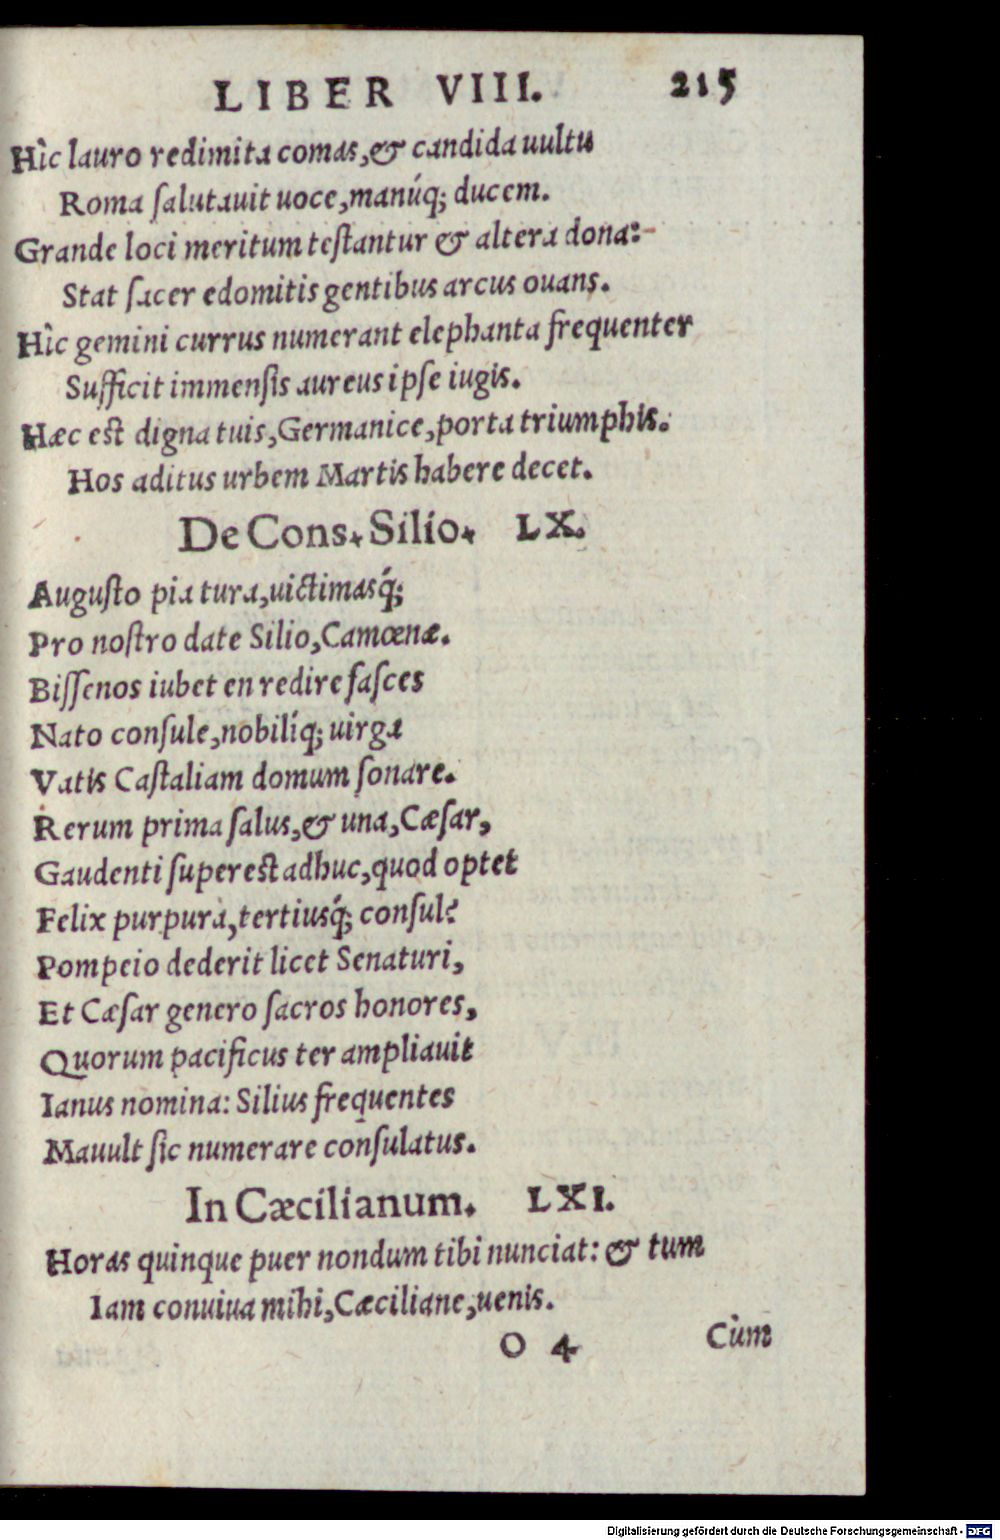 LIBER VIII. 215
Hìc lauro redimita comas, & candida uultu
Roma salutauit uoce, manúq; ducem.
Grande loci meritum testantur & altera dona:
Stat sacer edomitis gentibus arcus ouans.
Hìc gemini currus numerant elephanta frequenter
Sufficit immensis aureus ipse iugis.
Hæc est digna tuis, Germanice, porta triumphis.
Hos aditus urbem Martis habere decet.
De Cons. Silio. LX.
Augusto pia tura, uictimasq́;
Pro nostro date Silio, Camœnæ.
Bissenos iubet en redire fasces
Nato consule, nobilíq; uirga
Vatis Castaliam domum sonare.
Rerum prima salus, & una, Cæsar,
Gaudenti superest adhuc, quod optet
Felix purpura, tertiusq́; consul?
Pompeio dederit licet Senaturi,
Et Cæsar genero sacros honores,
Quorum pacificus ter ampliauit
Ianus nomina: Silius frequentes
Mauult sic numerare consulatus.
In Cæcilianum. LXI.
Horas quinque puer nondum tibi nunciat: & tum
Iam conuiua mihi, Cæciliane, uenis.
O 4 Cùm
Digitalisierung gefördert durch die Deutsche Forschungsgemeinschaft - DFG